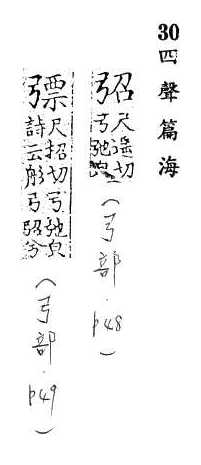 30 四聲篇海
弨尺遥切弓弛皃(弓部.p48)
彯尺招切弓弛皃詩云彤弓弨兮(弓部.p49)